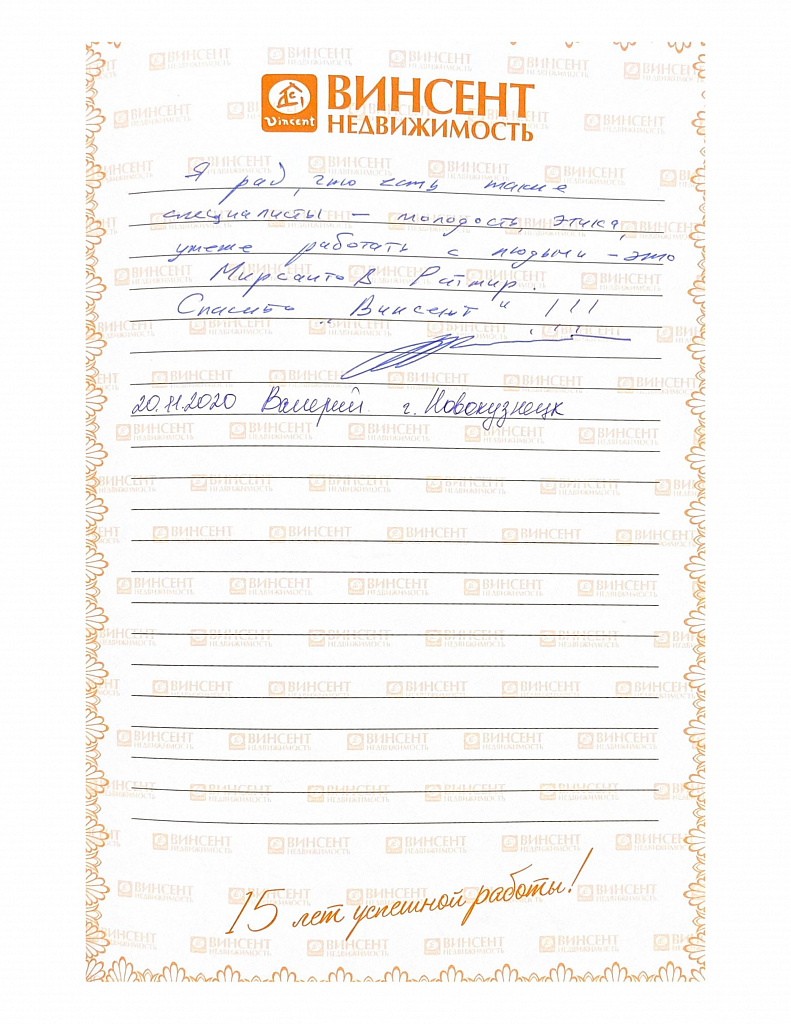 Vincent
ВИНСЕНТ
НЕДВИЖИМОСТЬ
Я рад, что есть такие
специалисты – молодость, этика,
умение работать с людьми – это
Мирсаитов Ратмир.
Спасибо „Винсент" !!!
20.11.2020 Валерий г. Новокузнецк
15 лет успешной работы!